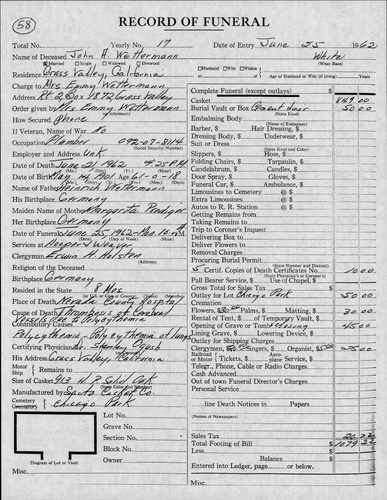 58
RECORD OF FUNERAL
Total No. Yearly No. 17 Date of Entry June 25 1962
Name of Deceased John A Wettermann White
Married Single Widowed Divorced (What Race)
Residence Grass Valley, California Husband Wife Widow Age of Husband or Wife (if living) Years
Charge to Mrs Emmy Wettermann
Address Rt 2 Box 1872 Grass Valley
Order given by Mrs Emmy Wettermann
How Secured phone
If Veteran, Name of War no
Occupation Plumber 092-07-8114
(Social Security Number)
Employer and Address unk
Date of Death June 21 1962 4:25 P.M.
Date of Birth May 4 1901 Age 61-0-18
Name of Father Heinrich Wettermann
His Birthplace Germany
Maiden Name of Mother Margareta
Her Birthplace Germany
Date of Funeral June 25, 1962 - Mon 10 A.M.
(Day of Week)
Services at Hooper & Weaver
Clergyman Erwin H Holsten
Religion of the Deceased
Birthplace Germany
Resided in the State 8 Mos
Place of Death Nevada County Hospital
Cause of Death Thrombosis of Cerebral
Vessels due to Polycythemia
Contributory Causes
Polycythemia - Polycythemia of lungs
Certifying Physician
His Address Grass Valley, California
Motor Ship Remains to
Size of Casket 913 H P Solid Oak
Manufactured by Sacto Casket Co
Cemetery Chicago Park
Crematory
Lot No.
Grave No.
Section No.
Block No.
Owner
Diagram of Lot or Vault
Misc.
Complete Funeral (except outlays) $
Casket 849.00
Burial Vault or Box Cement liner 50.00
(State Kind)
Embalming Body
(Name of Embalmer)
Barber, $ Hair Dressing, $
Dressing Body, $ Underwear, $
Suit or Dress
(State Kind and Color)
Slippers, $ Hose, $
Folding Chairs, $ Tarpaulin, $
Candelabrum, $ Candles, $
Door Spray, $ Gloves, $
Funeral Car, $ Ambulance, $
Limousines to Cemetery @ $
Extra Limousines @ $
Autos to R. R. Station @ $
Getting Remains from
Taking Remains to
Trip to Coroner's Inquest
Delivering Box to
Deliver Flowers to
Removal Charges
Procuring Burial Permit
(State Number and District)
5 Certif. Copies of Death Certificates No. 10.00
Pall Bearer Service, $ Use of Chapel, $
Gross Total for Sales Tax $
Outlay for Lot Chicago Park 50.00
Cremation
Flowers, $ Palms, $ Matting, $ 30.00
Rental of Tent, $ of Temporary Vault, $
Opening of Grave or Tomb closing 45.00
Lining Grave, $ Lowering Device, $
Outlay for Shipping Charges
Clergymen, $ Singers, $ Organist, $ 25.00
Railroad or Motor $ Tickets, $ Aeroplane Service, $
Telegr., Phone, Cable or Radio Charges
Cash Advanced
Out of town Funeral Director's Charges
Personal Service
line Death Notices in Papers
(Names of Newspapers)
Sales Tax
Total Footing of Bill $
Less
Balance $
Entered into Ledger, page or below.
Misc.